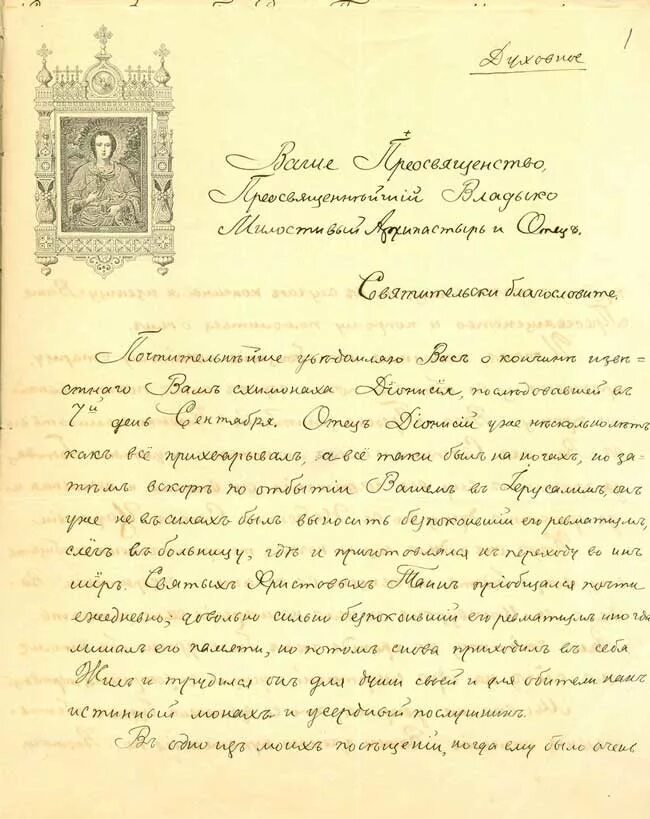 1
Духовное
Ваше Преосвященство,
Преосвященнѣйшій Владыко
Милостивый Архипастырь и Отецъ.
Святительски благословите.
Почтительнѣйше увѣдомляю Васъ о кончинѣ извѣ-
стнаго Вамъ схимонаха Діонисія, послѣдовавшей въ
7й день Сентября. Отецъ Діонисій уже нѣсколько лѣтъ
какъ всё прихварывалъ, а всё таки былъ на ногахъ, но за-
тѣмъ вскорѣ по отбытіи Вашемъ въ Іерусалимъ, онъ
уже не въ силахъ былъ выносить безпокоившій его ревматизмъ,
слёгъ въ больницу, гдѣ и приготовлялся къ переходу во инъ
міръ. Святыхъ Христовыхъ Таинъ пріобщался почти
ежедневно; довольно сильно безпокоившій его ревматизмъ иногда
лишалъ его памяти, но потомъ снова приходилъ въ себя
Жилъ и трудился онъ для души своей и для обители какъ
истинный монахъ и усердный послушникъ.
Въ одно изъ моихъ посѣщеній, когда ему было очень